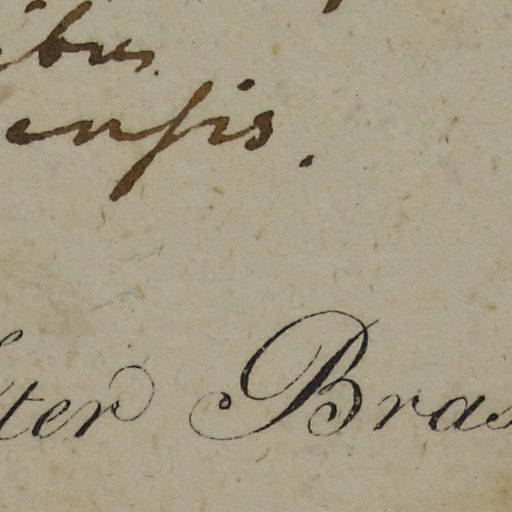 ibus
ensis.
ster Bras